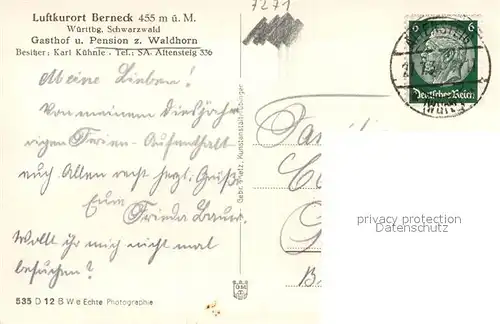 7271
Luftkurort Berneck 455 m ü. M.
Württbg. Schwarzwald
Gasthof u. Pension z. Waldhorn
Besitzer: Karl Kühnle - Tel.: SA. Altensteig 336
6
Deutsches Reich
Meine Lieben!
Von meinem diesjäh-
rigen Ferien-Aufenthalt
euch Allen recht herzl. Grüße
Eure
Frieda
Wollt ihr mich nicht mal
besuchen?
Gebr. Metz, Kunstanstalt, Tübingen
privacy protection
Datenschutz
535 D 12 B W e Echte Photographie